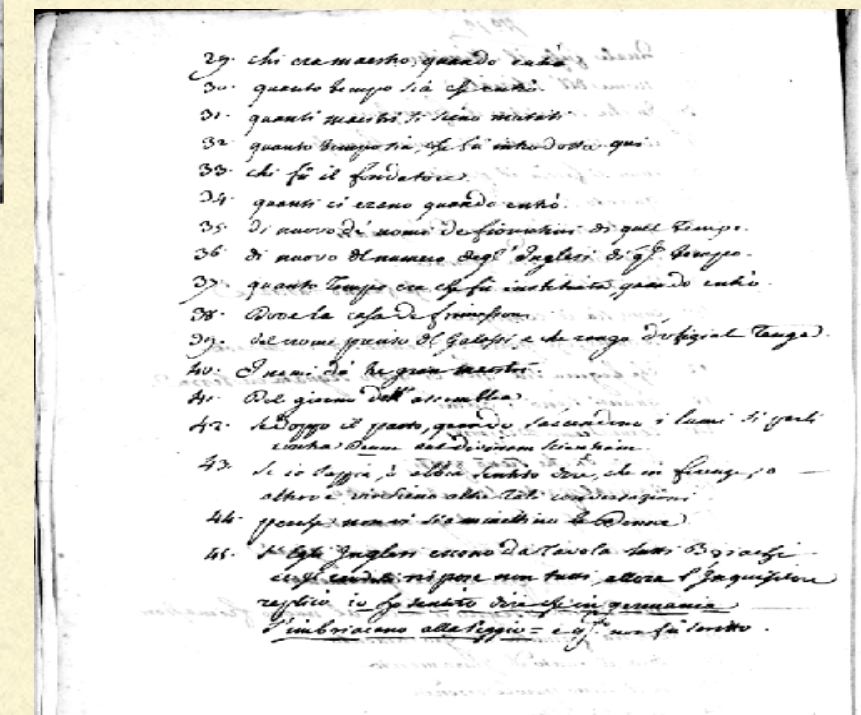 29. chi era maestro, quando entrò
30. quanto tempo sia che entrò.
31. quanti maestri si sieno mutati
32. quanto tempo sia, che fù introdotta qui
33. chi fù il fondatore
34. quanti ci erano quando entrò.
35. di nuovo de nomi de fiorentini di quel Tempo.
36. di nuovo del numero degl' Inglesi di q.l tempo.
37. quanto Tempo era che fù instituita, quando entrò.
38. Dove la casa de
39. del nome preciso del e che rango d'ofizial Tenga.
40. I nomi de tre gran maestri.
41. Del giorno dell' assemblea
42. se doppo il pasto, quando s'accendino i lumi si parli
contra Deum aut divinam scientiam.
43. se io sappia, o abbia sentito dire, che in firenze, o
altrove vi siano altre Tali conversazioni
44. perche non vi si amettino le Donne
45. Inglesi erono da Tavola tutti Briachi
rispose non tutti, allora l'Inquisitore
replicò io ho sentito dire che in germania
s'imbriacano alla peggio = e q.o non fù scritto.